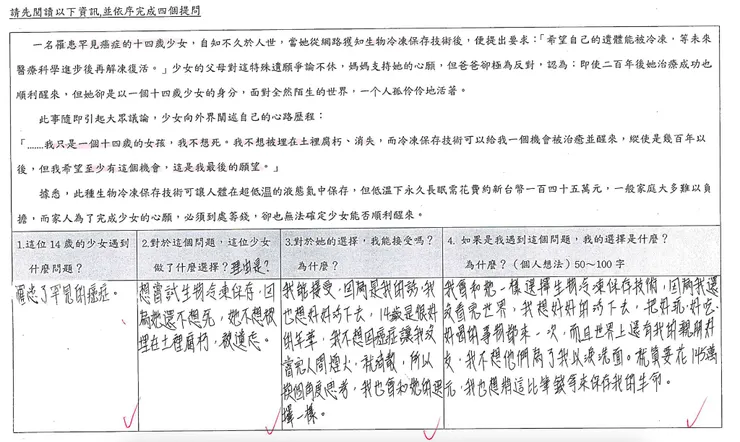 請先閱讀以下資訊,並依序完成四個提問
一名罹患罕見癌症的十四歲少女，自知不久於人世，當她從網路獲知生物冷凍保存技術後，便提出要求：「希望自己的遺體能被冷凍，等未來
醫療科學進步後再解凍復活。」少女的父母對這特殊遺願爭論不休，媽媽支持她的心願，但爸爸卻極為反對，認為：即使二百年後她治療成功也
順利醒來，但她卻是以一個十四歲少女的身分，面對全然陌生的世界，一個人孤伶伶地活著。
此事隨即引起大眾議論，少女向外界闡述自己的心路歷程：
「……我只是一個十四歲的女孩，我不想死。我不想被埋在土裡腐朽、消失，而冷凍保存技術可以給我一個機會被治癒並醒來，縱使是幾百年以
後，但我希望至少有這個機會，這是我最後的願望。」
據悉，此種生物冷凍保存技術可讓人體在超低溫的液態氮中保存，但低溫下永久長眠需花費約新台幣一百四十五萬元，一般家庭大多難以負
擔，而家人為了完成少女的心願，必須到處籌錢，卻也無法確定少女能否順利醒來。
1.這位 14 歲的少女遇到
什麼問題？
2.對於這個問題，這位少女
做了什麼選擇？理由是?
3.對於她的選擇，我能接受嗎？
為什麼？
4. 如果是我遇到這個問題，我的選擇是什麼？
為什麼？（個人想法）50～100 字
罹患了罕見的癌症。
想嘗試生物冷凍保存，因
為她還不想死，她不想被
埋在土裡腐朽，被遺忘。
我能接受，因為是我的話，我
也想好好活下去，14歲是很好
的年華，我不想因癌症讓我沒
當完人間煙火，就殞散，所以
換個角度思考，我也會和她的選
擇一樣。
我會和她一樣選擇生物冷凍保存技術，因為我還
沒看完世界，我想好好的活下去，把好玩、好吃、
好喝的事物都來一次，而且世界上還有我的親朋好
友，我不想他們為了我以淚洗面。就算要花145萬
元，我也想將這比筆錢拿來保存我的生命。